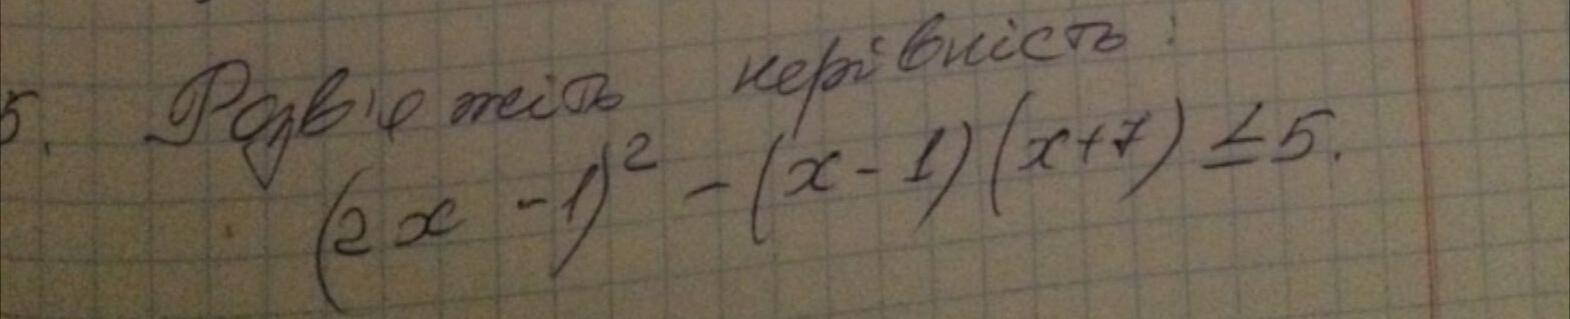 5. Розв'яжіть нерівність:
(2x - 1)² - (x - 1)(x+7) ≤ 5.